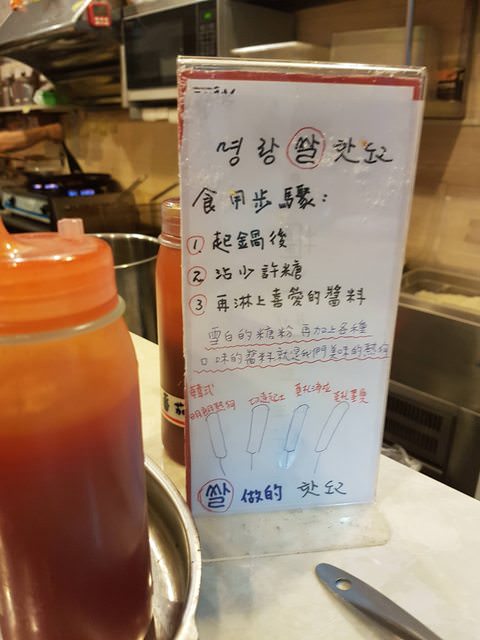 명랑 쌀 핫도그
食用步驟:
① 起鍋後
② 沾少許糖
③ 再淋上喜愛的醬料
雪白的糖粉 再加上各種
口味的醬料就是我們美味的熱狗
韓式
明朗熱狗
쌀 做的 핫도그